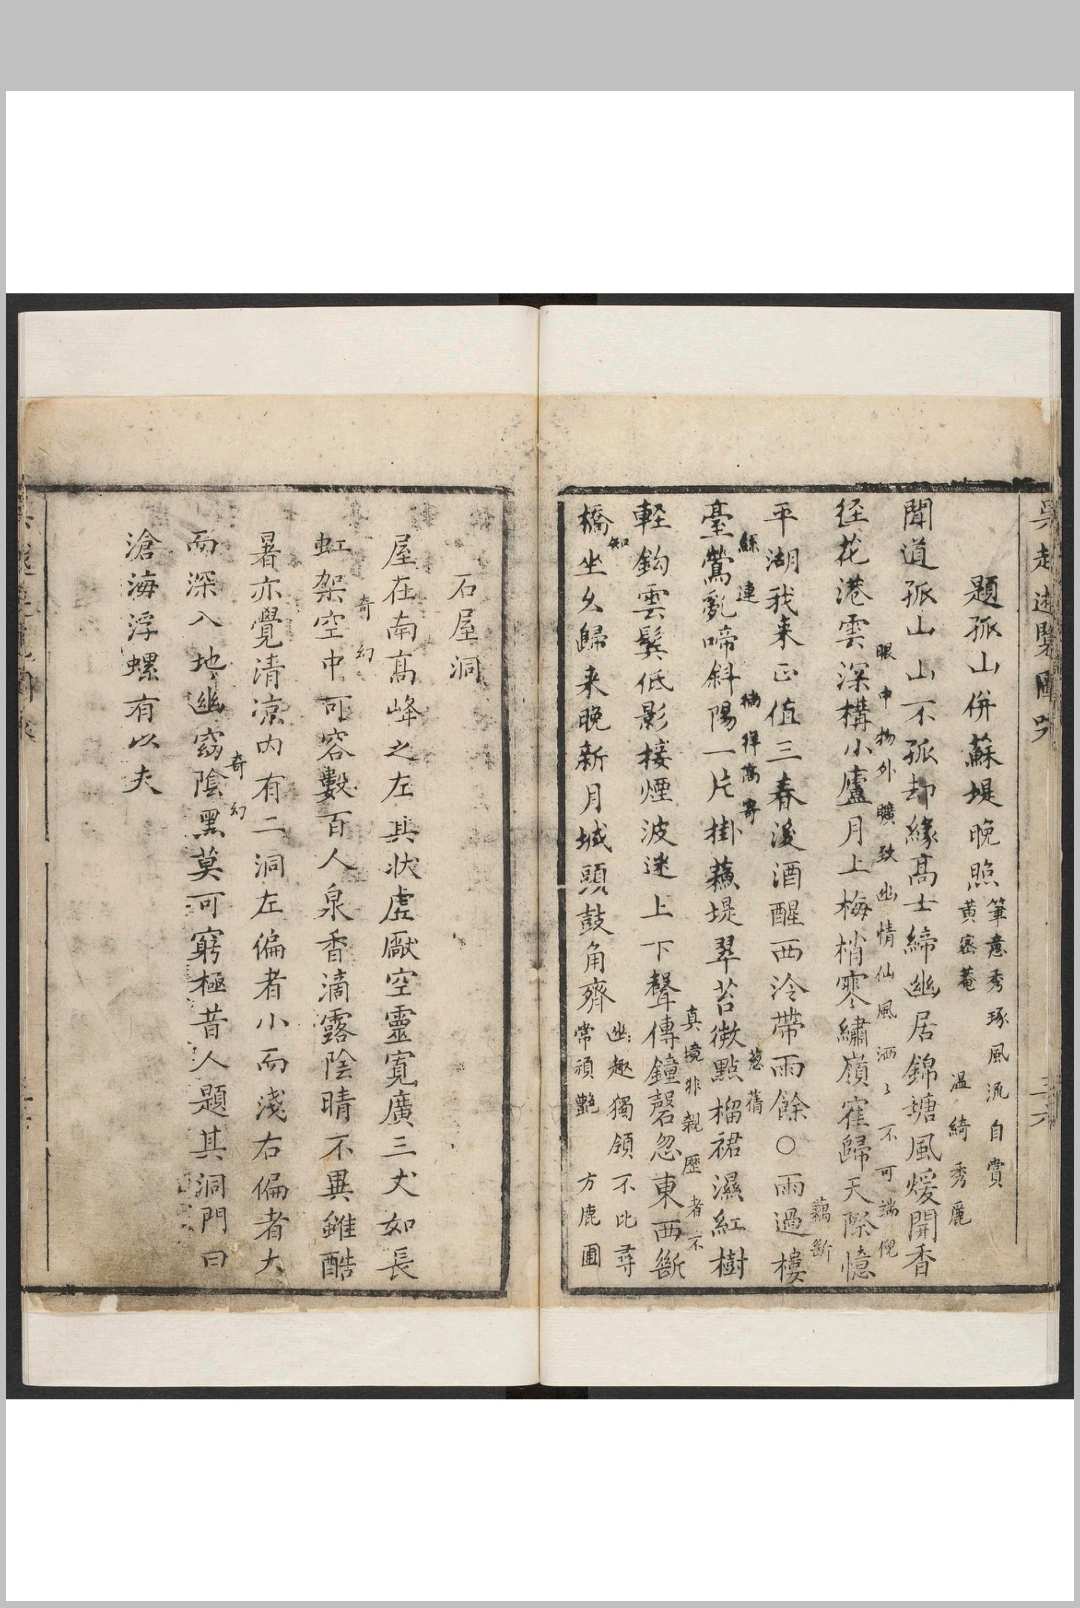 題孤山併蘇堤晚照
筆意秀琢風流自賞
黄宻菴
温綺秀麗
聞道孤山山不孤却緣髙士締幽居錦塘風煖開香
径花港雲深構小廬月上梅梢寒繡嶺霍歸天際憶
眼中物外曠致幽情仙風洒〻不可端倪
平湖我来正值三春後酒醒西泠帶雨餘○雨過樓
藕斷
絲連
臺鶯亂啼斜陽一片掛蘓堤翠苔微點榴裙濕紅樹
徜徉寓奇
葱蒨
軽鈎雲鬓低影接煙波迷上下聲傳鐘磬忽東西斷
真境非親歴者不
知
橋坐久歸来晚新月城頭鼓角齊
幽趣獨領不比尋
常頑艷
方鹿圃
石屋洞
屋在南髙峰之左其状虚厰空靈寛廣三丈如長
奇幻
虹架空中可容數百人泉香滴露陰晴不異雖酷
暑亦覺清凉内有二洞左偏者小而淺右偏者大
奇幻
而深入地幽窈陰黑莫可窮極昔人題其洞門曰
滄海浮螺有以夫